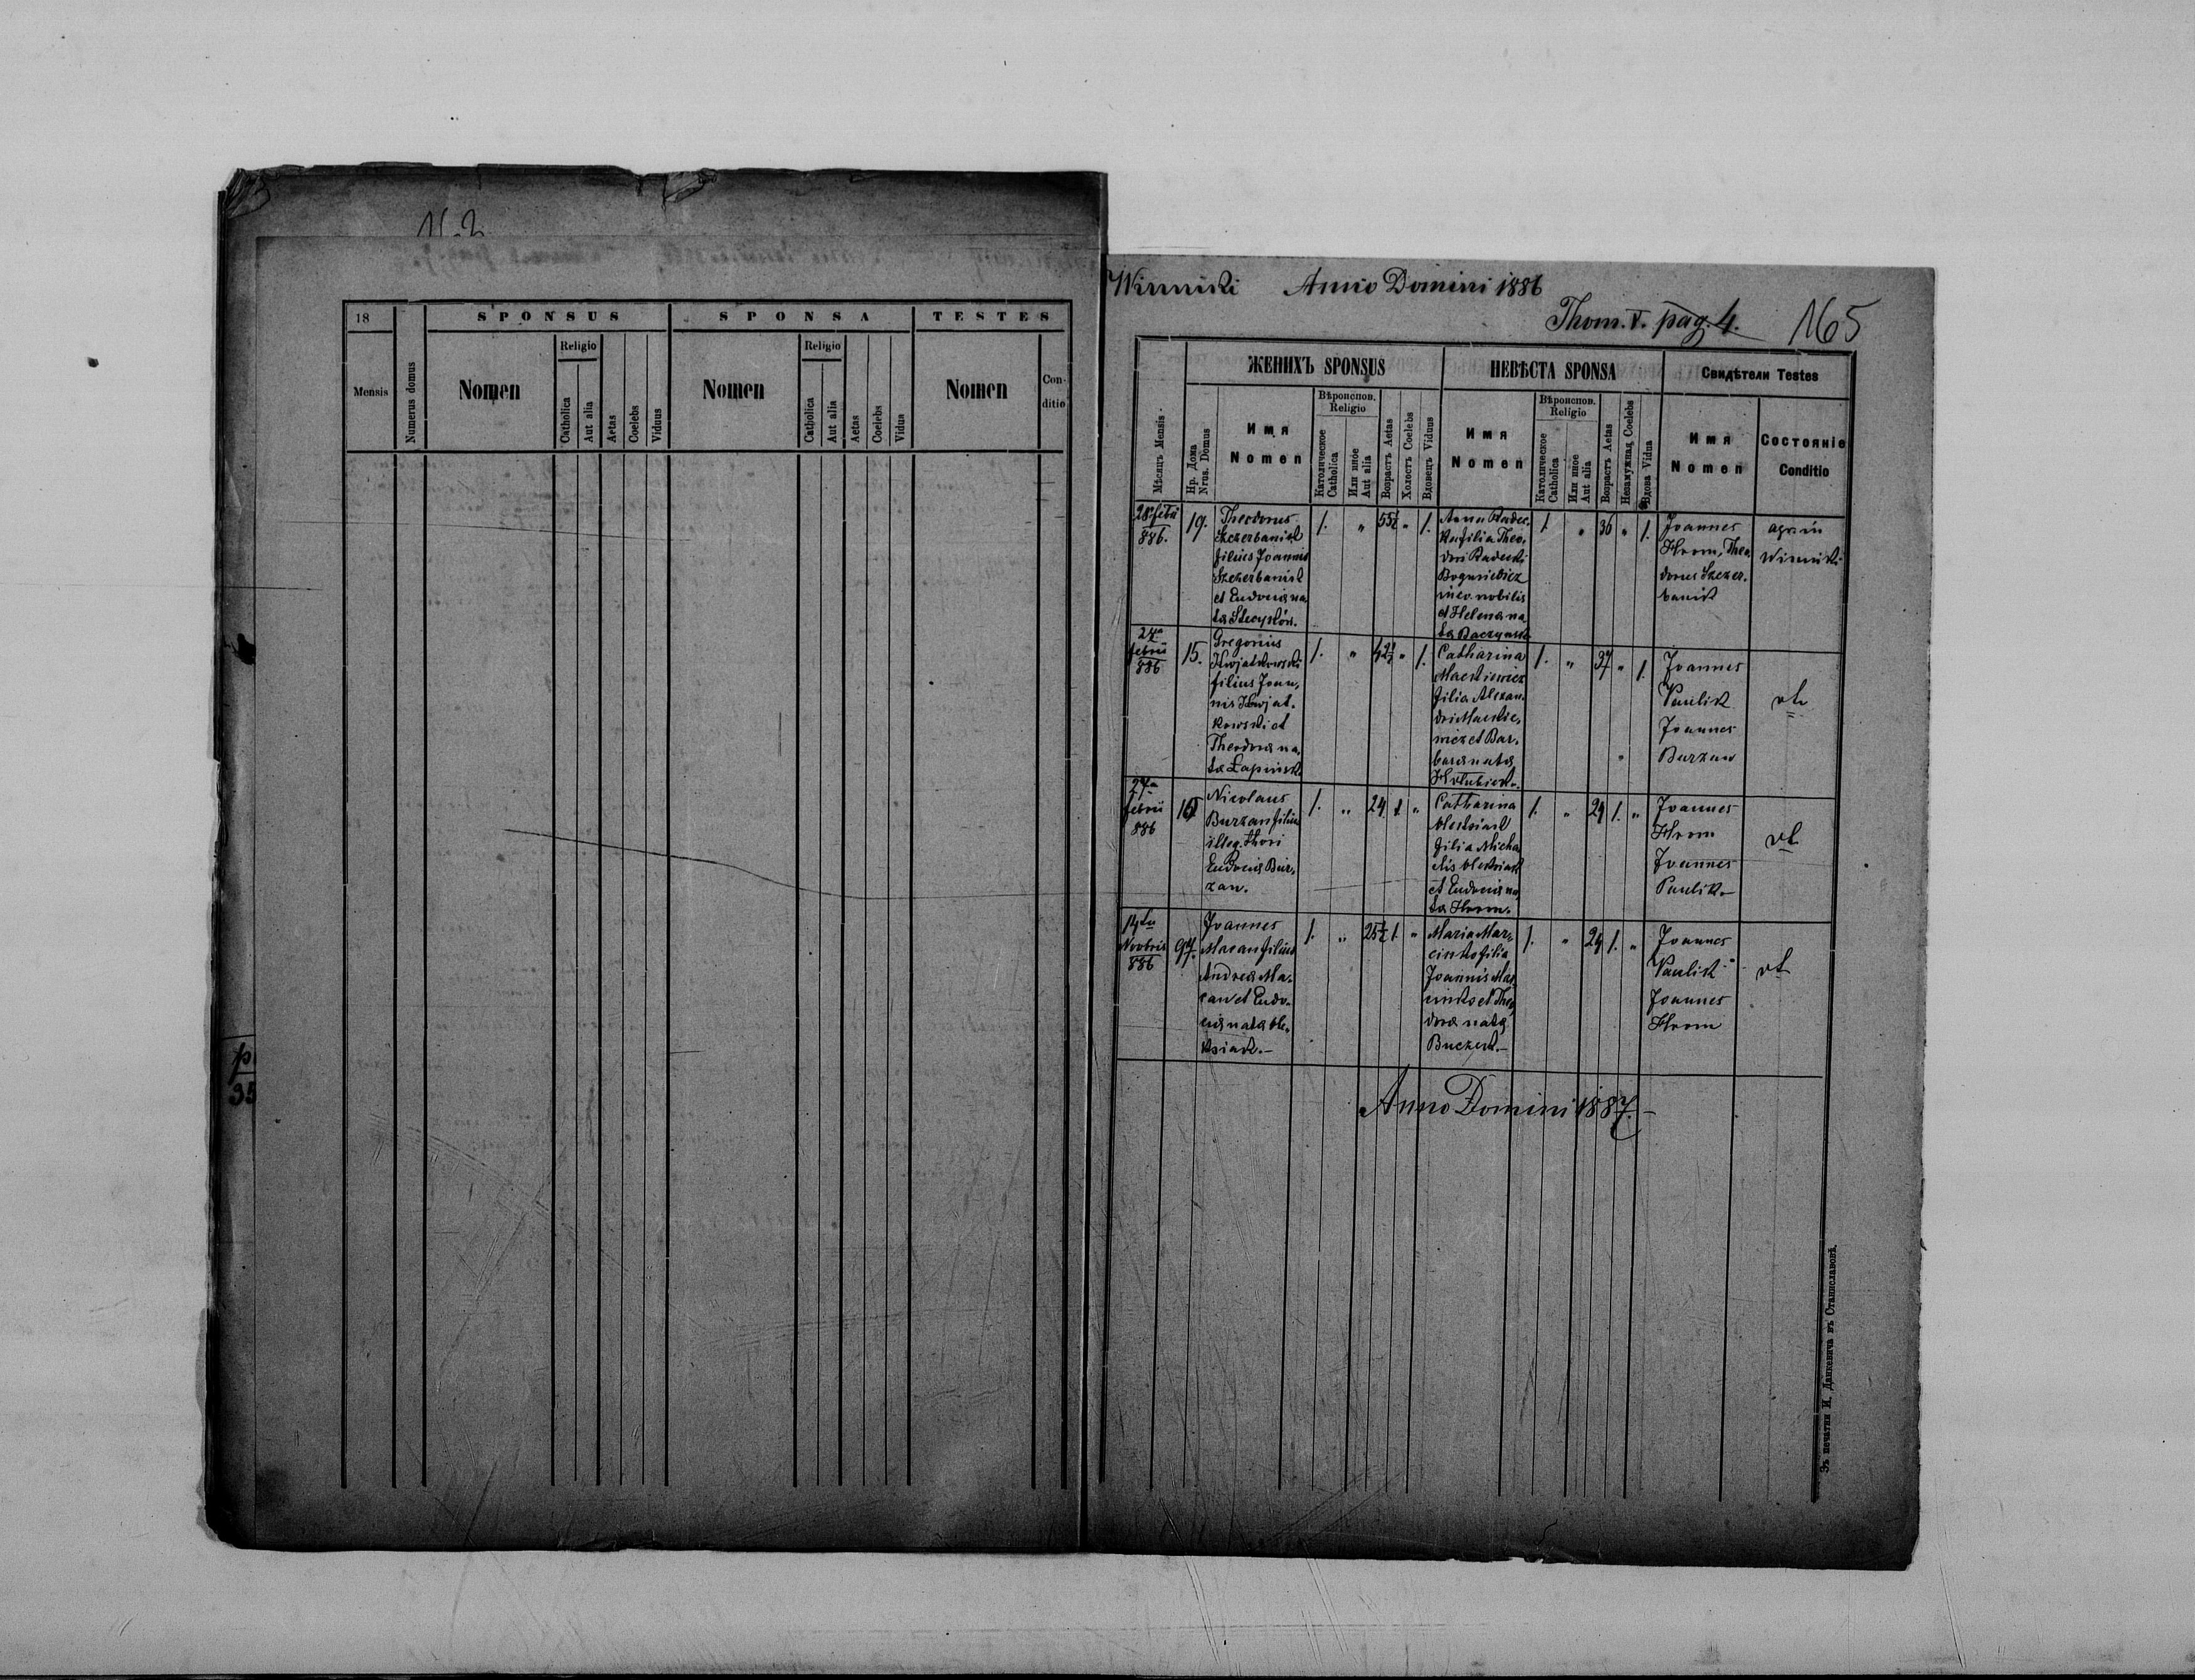 18
SPONSUS
SPONSA
TESTES
Mensis
Numerus domus
Nomen
Religio
Catholica
Aut alia
Aetas
Coelebs
Viduus
Nomen
Religio
Catholica
Aut alia
Aetas
Coelebs
Vidua
Nomen
Con-
ditio
35
Winniki Anno Domini 1886
Thom. V. pag. 4. 165
ЖЕНИХЪ SPONSUS
НЕВѢСТА SPONSA
Свидѣтели Testes
Мѣсяцъ Mensis
Нр. Дома
Nrus. Domus
Имя
Nomen
Вѣроиспов.
Religio
Католическое
Catholica
Или иное
Aut alia
Возрастъ Aetas
Холостъ Coelebs
Вдовецъ Viduus
Имя
Nomen
Вѣроиспов.
Religio
Католическое
Catholica
Или иное
Aut alia
Возрастъ Aetas
Незамужная Coelebs
Вдова Vidua
Имя
Nomen
Состояніе
Conditio
28 febrii
886.
19.
Theodorus
Szczerbaniuk
filius Joannis
Szczerbaniuk
et Eudocia na
ta Stecyków.
1. „ 55½ „ 1.
Anna Radec,
filia Theo,
dori Radecki
nobilis
et Helena na,
ta Baczynsk
1. „ 36 „ 1.
Joannes
Hrom, Theo
dorus Szczer,
baniuk
agr. in
Winniki
27
febrii
886
15.
Gregorius
Kwjatkowski
filius Joan,
nis Kwjat,
kowski et
Theodora na,
ta Łapinsk
1. „ 42 „ 1.
Catharina
Mackiewicz
filia Alexan
dri Mackie,
wicz et Bar,
bara nata
1. „ 37 „ 1.
Joannes
Paulik
Joannes
Burzan
27
febrii
886
Nicolaus
Burzan filius
illeg. thori
Eudocia Bur,
zan.
1. „ 24 1 „
Catharina
Oleksiuk
filia Micha
elis Oleksiuk
et Eudocia na,
ta Hrom.
1. „ 24 1. „
Joannes
Hrom
Joannes
Paulik
14
Novbris
886
97.
Joannes
Macan filius
Andrea Ma,
can et Eudo,
cia nata Ole,
ksiuk.—
1. „ 25½ 1. „
Maria Mar,
cinko filia
Joannis Mar
cinko et Theo,
dora nata
1. „ 24 1. „
Joannes
Paulik
Joannes
Hrom
Anno Domini 1887.—
Зъ печатни И. Данкевича въ Станиславовѣ.